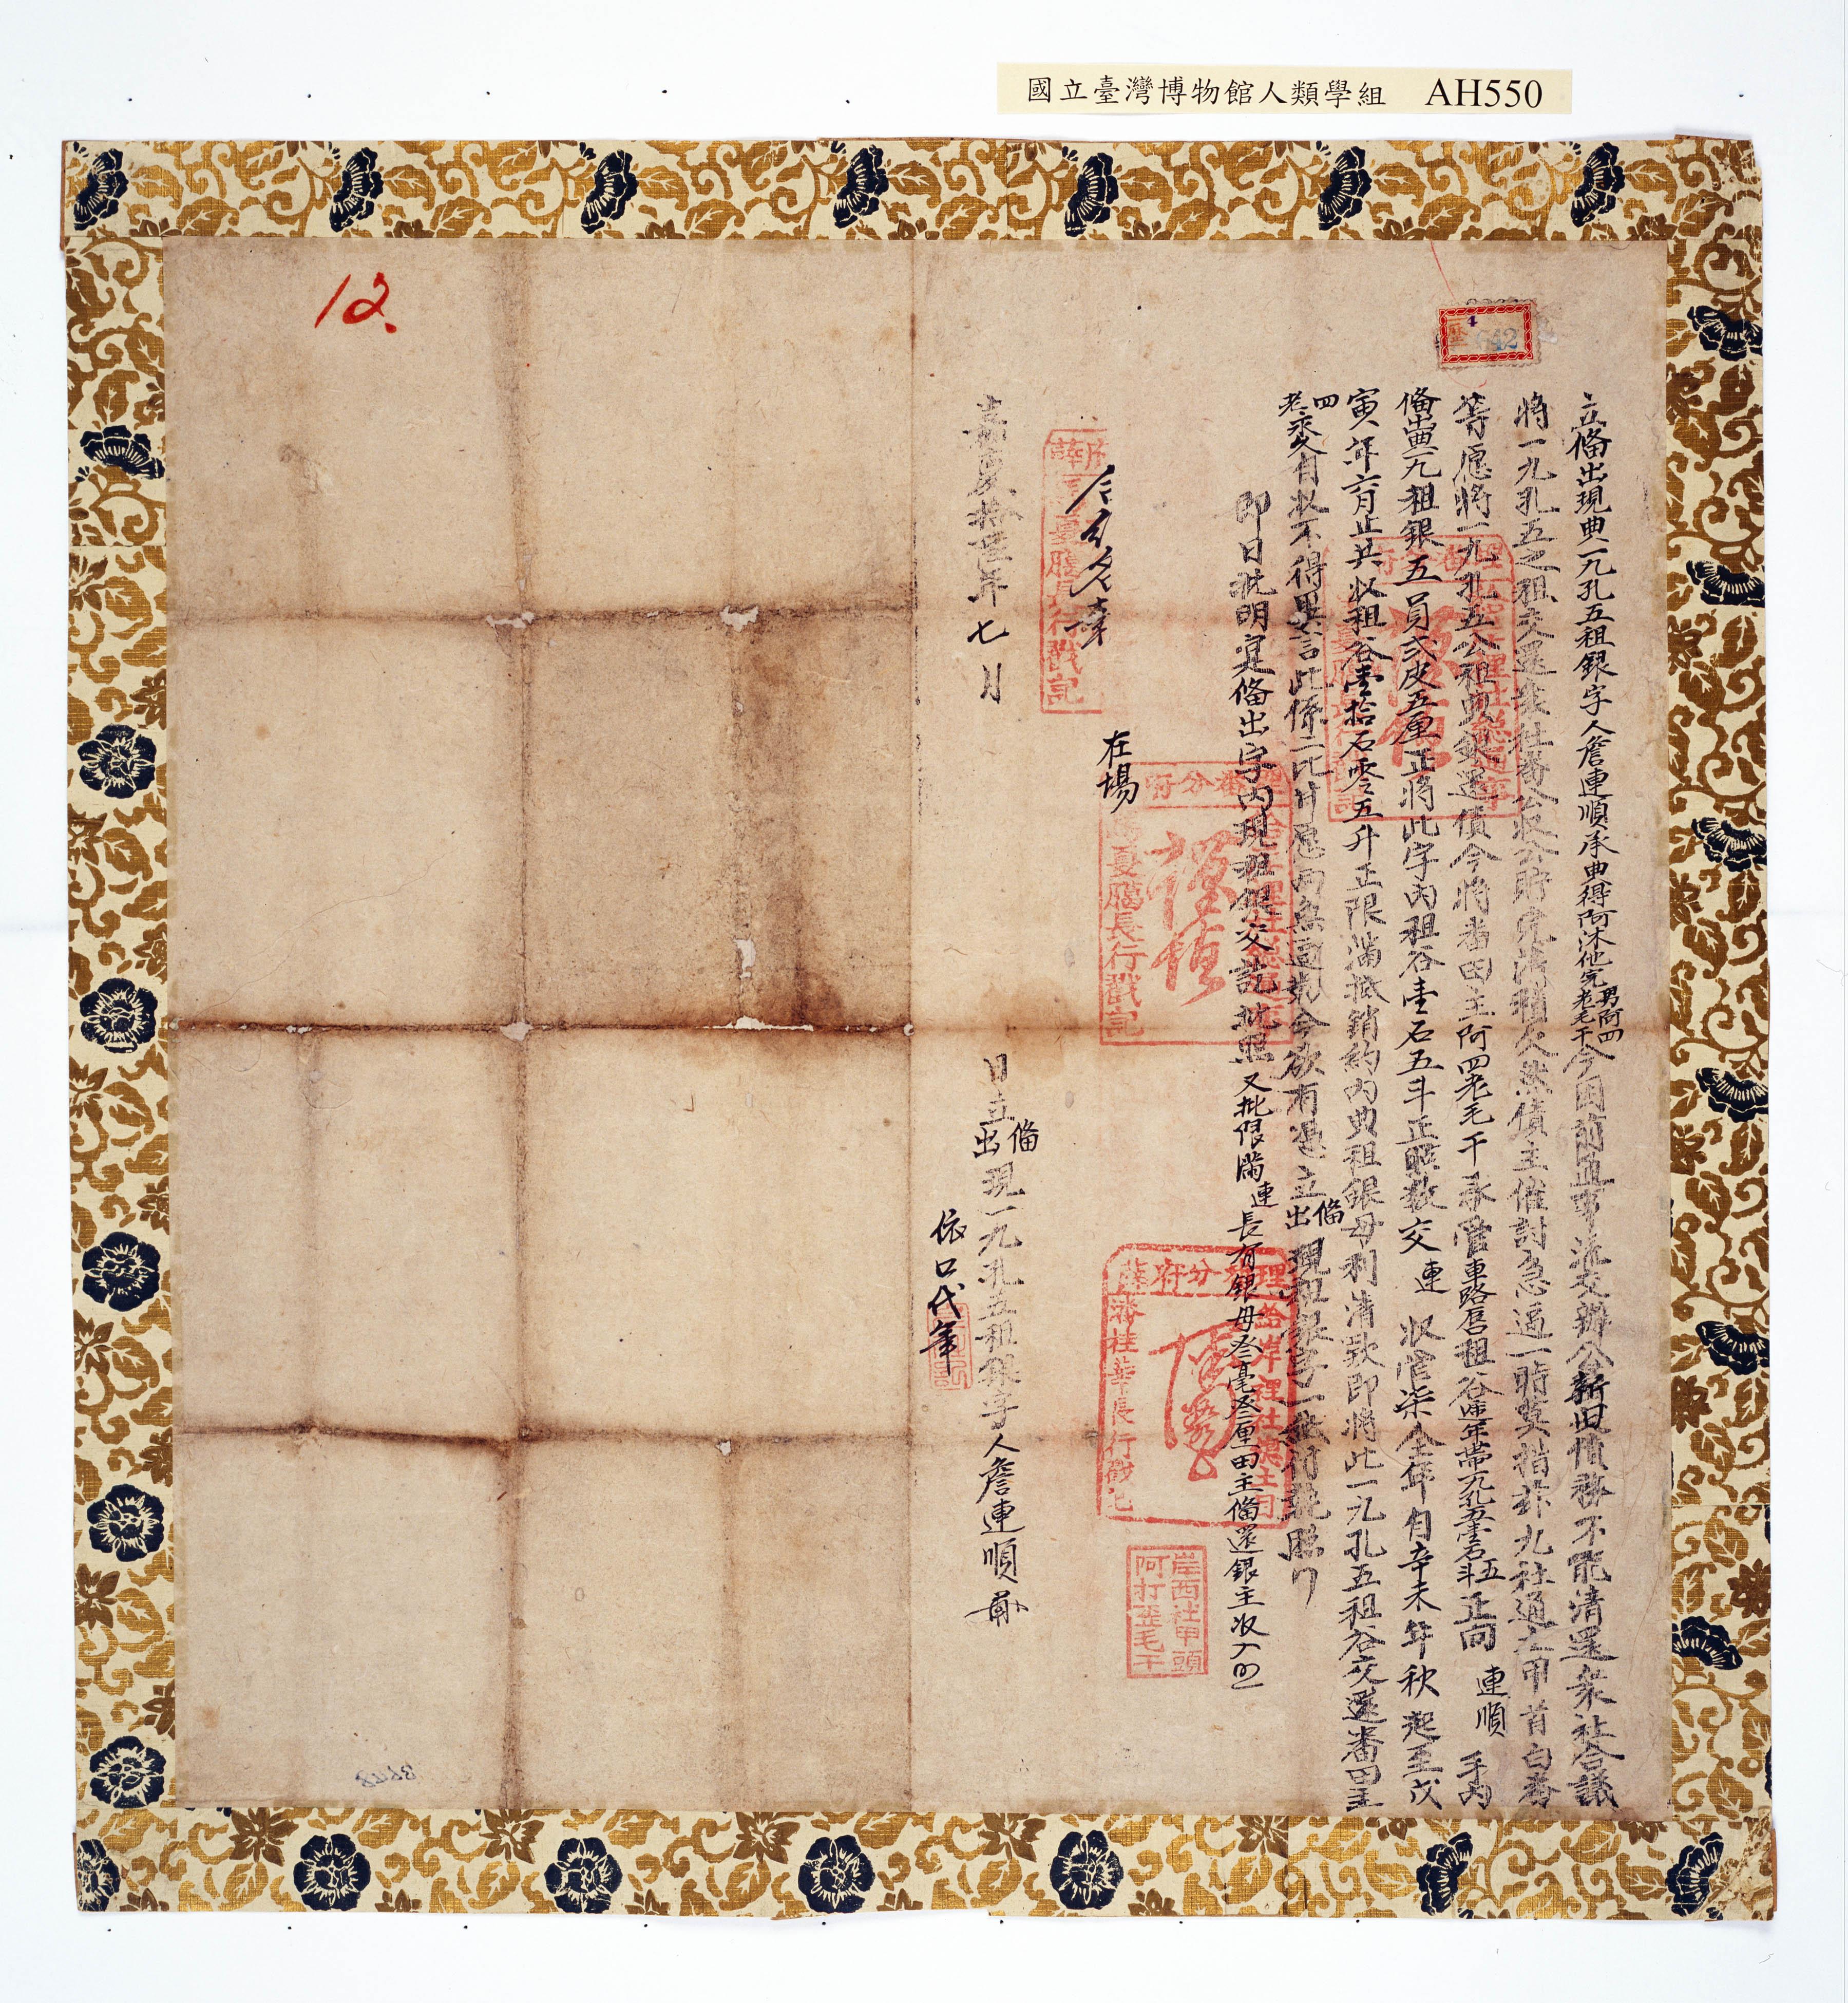 國立臺灣博物館人類學組 AH550
12.
42
立備出現典一九孔五租銀字人詹連順承典得阿沐他完男阿四老毛干今因前通事派交辦公新旧債務不能清還衆社合議
將一九孔五之租交還衆社番公收公貯完清積欠然債主催討急逼一時莫措拆九社通土甲首白番
等愿將一九孔五公租典銀還債今將番田主阿四老毛干承管車路唇租谷逐年帶一九孔五壹石五斗正向連順手內
備出典一九租銀五員弍皮五厘正將此字內租谷壹石五斗正照数交連收管柒全年自辛未年秋起至戊
寅年六月止共收租谷壹拾石零五升正限滿抵銷約內典租銀母利清款即將此一九孔五租谷交還番田主
四老永久自收不得異言此係二比甘愿兩無迫勒今欲有憑立備出現租銀字一紙付執照
即日批明寔備出字內現租銀交訖批照又批限滿連長有銀母叁毫叁厘田主備還銀主收入
在場
嘉慶拾陸年七月
日立備出現一九孔五租銀字人詹連順
依口代筆
理番分府
薛
給岸裡社總土司
潘桂華長行戳記
戛臘長行戳記
岸西社甲頭
阿打歪毛干